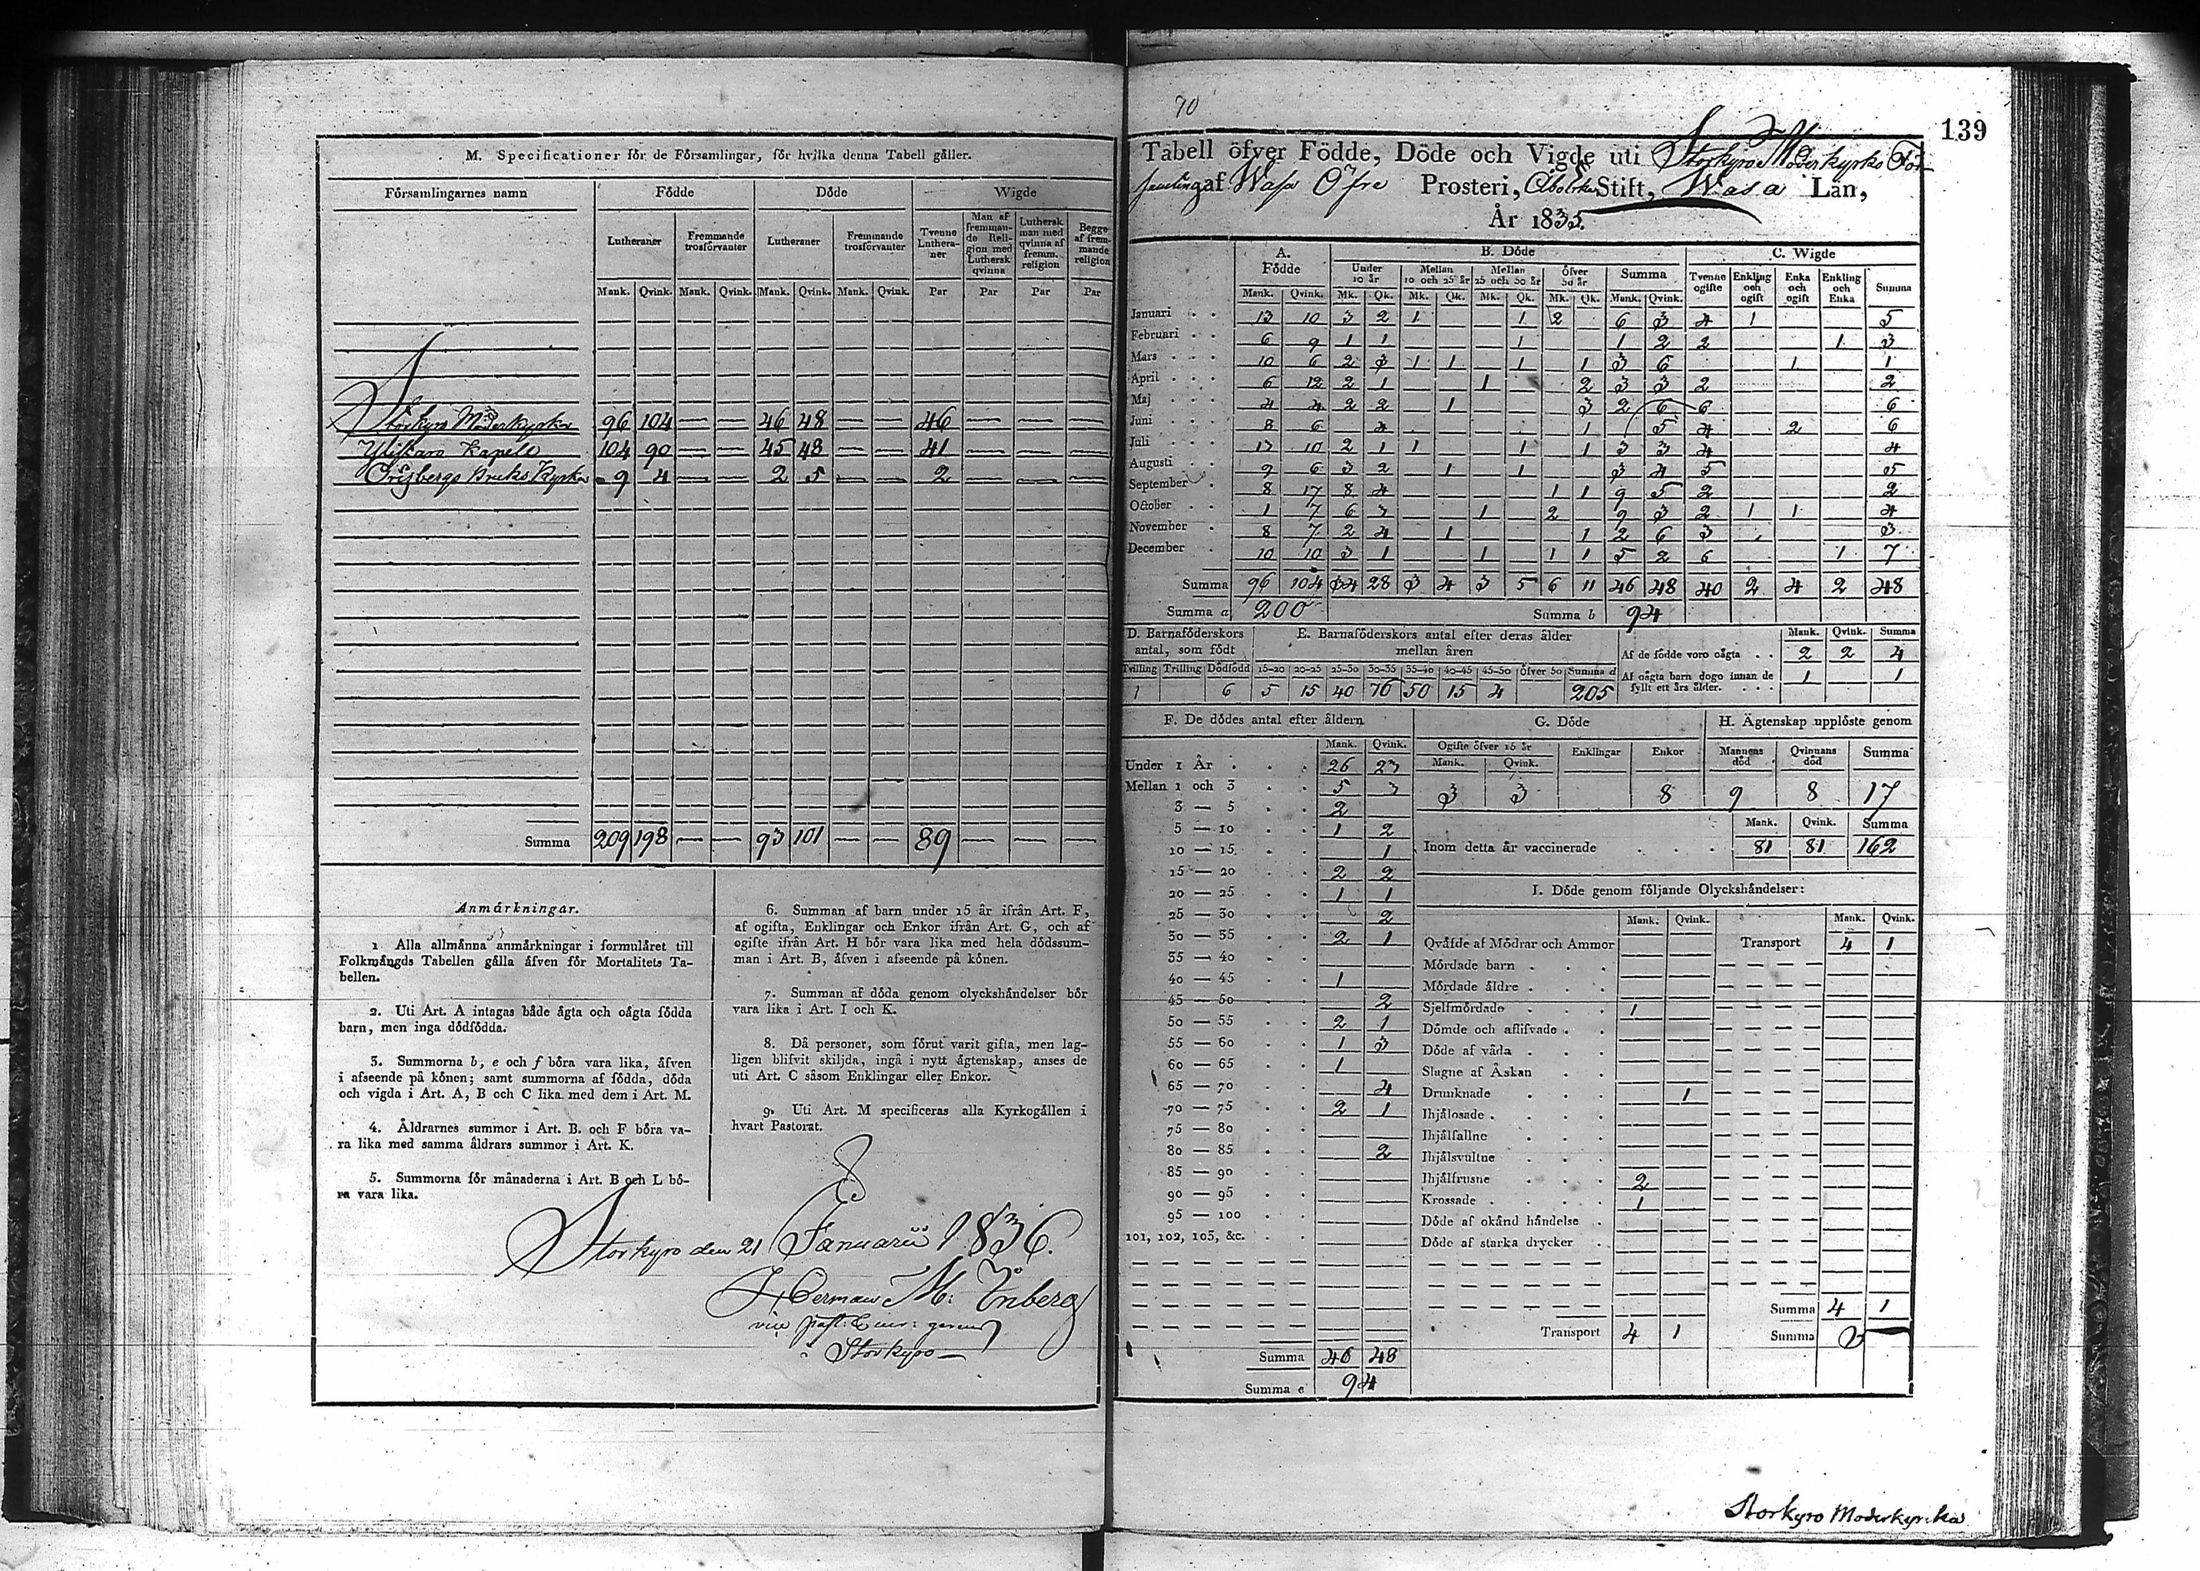 M. Specificationer för de Församlingar, för hvilka denna Tabell gäller.
Församlingarnes namn Födde Döde Wigde
Lutheraner Fremmande trosförvanter Lutheraner Fremmande trosförvanter Tvenne Lutheraner Man af fremmande Religion med Luthersk qvinna Luthersk man med qvinna af fremm. religion Begge af fremmande religion
Mank. Qvink. Mank. Qvink. Mank. Qvink. Mank. Qvink. Par Par Par Par
Storkyro Moderkyrka 96 104 — — 46 48 — — 46 — — —
Ylistaro Kapell 104 90 — — 45 48 — — 41 — — —
Orisbergs Bruks Kyrka 9 4 — — 2 5 — — 2 — — —
Summa 209 198 — — 93 101 — — 89 — — —
Anmärkningar.
1 Alla allmänna anmärkningar i formuläret till
Folkmängds Tabellen gälla äfven för Mortalitets Ta-
bellen.
2. Uti Art. A intagas både ägta och oägta födda
barn, men inga dödfödda.
3. Summorna b, e och f böra vara lika, äfven
i afseende på könen; samt summorna af födda, döda
och vigda i Art. A, B och C lika med dem i Art. M.
4. Åldrarnes summor i Art. B. och F böra va-
ra lika med samma åldrars summor i Art. K.
5. Summorna för månaderna i Art. B och L bö-
ra vara lika.
6. Summan af barn under 15 år ifrån Art. F,
af ogifta, Enklingar och Enkor ifrån Art. G, och af
ogifte ifrån Art. H bör vara lika med hela dödssum-
man i Art. B, äfven i afseende på könen.
7. Summan af döda genom olyckshändelser bör
vara lika i Art. I och K.
8. Då personer, som förut varit gifta, men lag-
ligen blifvit skiljda, ingå i nytt ägtenskap, anses de
uti Art. C såsom Enklingar eller Enkor.
9. Uti Art. M specificeras alla Kyrkogällen i
hvart Pastorat.
Storkyro den 21 Januarii 1836.
Herman M:
vice past:
i Storkyro
70
139
Tabell öfver Födde, Döde och Vigde uti Storkyro Moderkyrko För-
samling af Wasa Öfre Prosteri, Åbo Stift, Wasa Län,
År 1835.
A. Födde B. Döde C. Wigde
Under 10 år Mellan 10 och 25 år Mellan 25 och 50 år Öfver 50 år Summa Tvenne ogifte Enkling och ogift Enka och ogift Enkling och Enka Summa
Mank. Qvink. Mk. Qk. Mk. Qk. Mk. Qk. Mk. Qk. Mank. Qvink.
Januari 13 10 3 2 1 1 2 6 3 4 1 5
Februari 6 9 1 1 1 1 2 2 1 3
Mars 10 6 2 3 1 1 1 1 3 6 1 1
April 6 12 2 1 1 2 3 3 2 2
Maj 4 4 2 2 1 3 2 6 6 6
Juni 8 6 4 1 5 4 2 6
Juli 13 10 2 1 1 1 1 3 3 4 4
Augusti 9 6 3 2 1 1 3 4 5 5
September 8 17 8 4 1 1 9 5 2 2
October 1 7 6 3 1 2 9 3 2 1 1 4
November 8 7 2 4 1 1 2 6 3 3
December 10 10 3 1 1 1 1 5 2 6 1 7
Summa 96 104 34 28 3 4 3 5 6 11 46 48 40 2 4 2 48
Summa a 200 Summa b 94
D. Barnaföderskors antal, som födt
Tvilling Trilling Dödfödd
1 6
E. Barnaföderskors antal efter deras ålder mellan åren
15–20 20–25 25–30 30–35 35–40 40–45 45–50 Öfver 50 Summa d
5 15 40 76 50 15 4 205
Mank. Qvink. Summa
Af de födde voro oägta . . 2 2 4
Af oägta barn dogo innan de fyllt ett års ålder. 1 1
F. De dödes antal efter åldern
Mank. Qvink.
Under 1 År 26 23
Mellan 1 och 3 5 3
3 — 5 2
5 — 10 1 2
10 — 15 1
15 — 20 2 2
20 — 25 1 1
25 — 30 2
30 — 35 2 1
35 — 40
40 — 45 1
45 — 50 2
50 — 55 2 1
55 — 60 1 3
60 — 65 1
65 — 70 4
70 — 75 2 1
75 — 80
80 — 85 2
85 — 90
90 — 95
95 — 100
101, 102, 103, &c.
Summa 46 48
Summa e 94
G. Döde
Ogifte öfver 15 år Enklingar Enkor
Mank. Qvink.
3 3 8
H. Ägtenskap upplöste genom
Mannens död Qvinnans död Summa
9 8 17
Mank. Qvink. Summa
Inom detta år vaccinerade 81 81 162
I. Döde genom följande Olyckshändelser:
Mank. Qvink. Mank. Qvink.
Qväfde af Mödrar och Ammor Transport 4 1
Mördade barn
Mördade äldre
Sjelfmördade 1
Dömde och aflifvade
Döde af våda
Slagne af Åskan
Drunknade 1
Ihjälosade
Ihjälfallne
Ihjälsvultne
Ihjälfrusne 2
Krossade 1
Döde af okänd händelse
Döde af starka drycker
Summa 4 1
Transport 4 1 Summa 5
Storkyro Moderkyrka